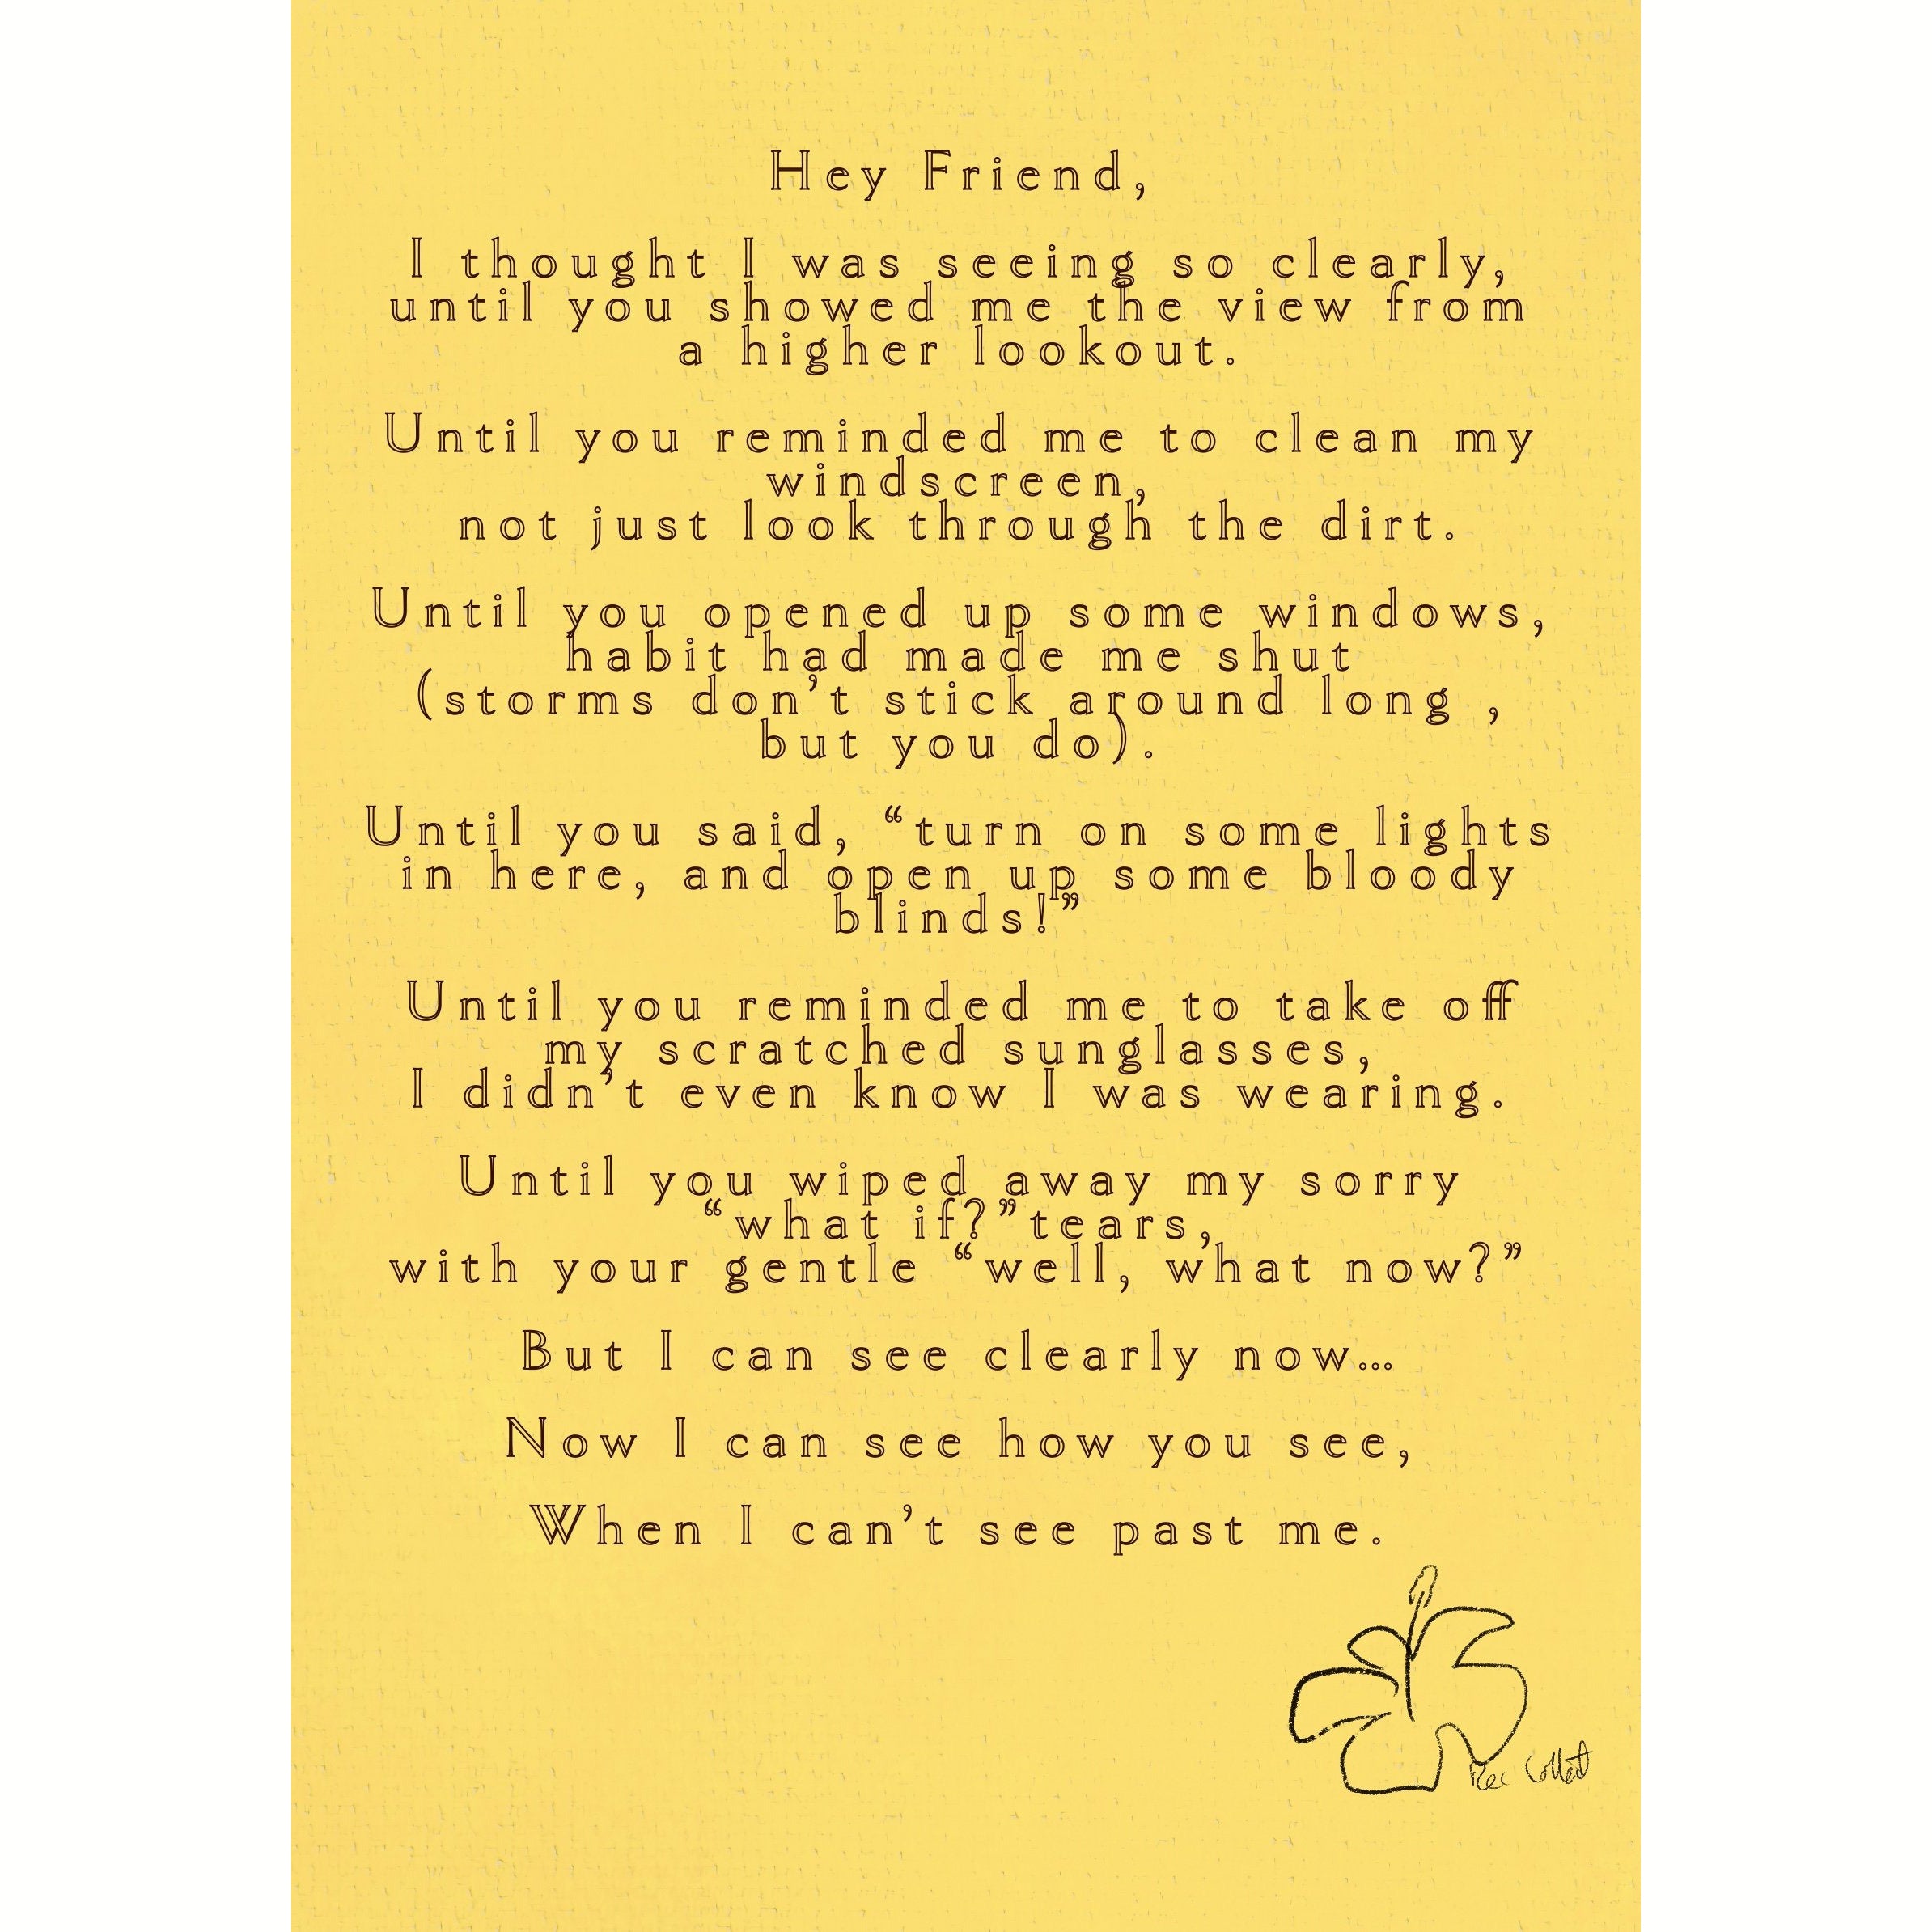 Hey Friend,
I thought I was seeing so clearly,
until you showed me the view from
a higher lookout.
Until you reminded me to clean my
windscreen,
not just look through the dirt.
Until you opened up some windows,
habit had made me shut
(storms don’t stick around long ,
but you do).
Until you said, “turn on some lights
in here, and open up some bloody
blinds!”
Until you reminded me to take off
my scratched sunglasses,
I didn’t even know I was wearing.
Until you wiped away my sorry
“what if?”tears,
with your gentle “well, what now?”
But I can see clearly now…
Now I can see how you see,
When I can’t see past me.